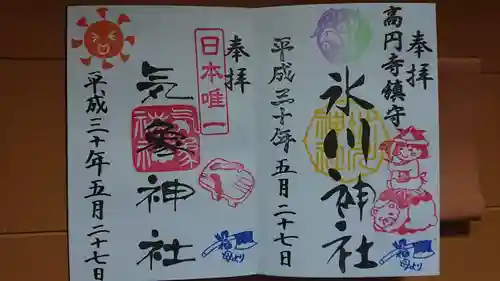 奉拝
高円寺鎮守
氷川神社
平成三十年五月二十七日
奉拝
日本唯一
気象神社
平成三十年五月二十七日